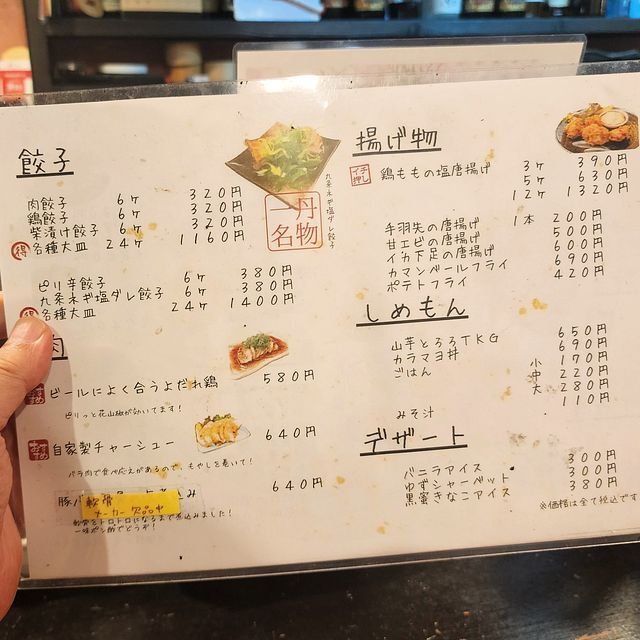 餃子
肉餃子 6ヶ 320円
鶏餃子 6ヶ 320円
柴漬け餃子 6ヶ 320円
得 各種大皿 24ヶ 1160円
九条ネギ塩ダレ餃子
一丹
名物
ピリ辛餃子 6ヶ 380円
九条ネギ塩ダレ餃子 6ヶ 380円
得 各種大皿 24ヶ 1400円
肉
ビールによく合うよだれ鶏 580円
ピリっと花山椒が効いてます!
おすすめ 自家製チャーシュー 640円
バラ肉で食べ応えがあるので、もやしを巻いて!
豚 込み 640円
軟骨
メーカー欠品中
軟骨をトロトロになるまで煮込みました!
一味ポン酢でどうぞ!
揚げ物
イチ押し 鶏ももの塩唐揚げ 3ヶ 390円
5ヶ 630円
12ヶ 1320円
手羽先の唐揚げ 1本 200円
甘エビの唐揚げ 500円
イカ下足の唐揚げ 600円
カマンベールフライ 690円
ポテトフライ 420円
しめもん
山芋とろろTKG 650円
カラマヨ丼 690円
ごはん 小 170円
中 220円
大 280円
みそ汁 110円
デザート
バニラアイス 300円
ゆずシャーベット 300円
黒蜜きなこアイス 380円
※価格は全て税込です